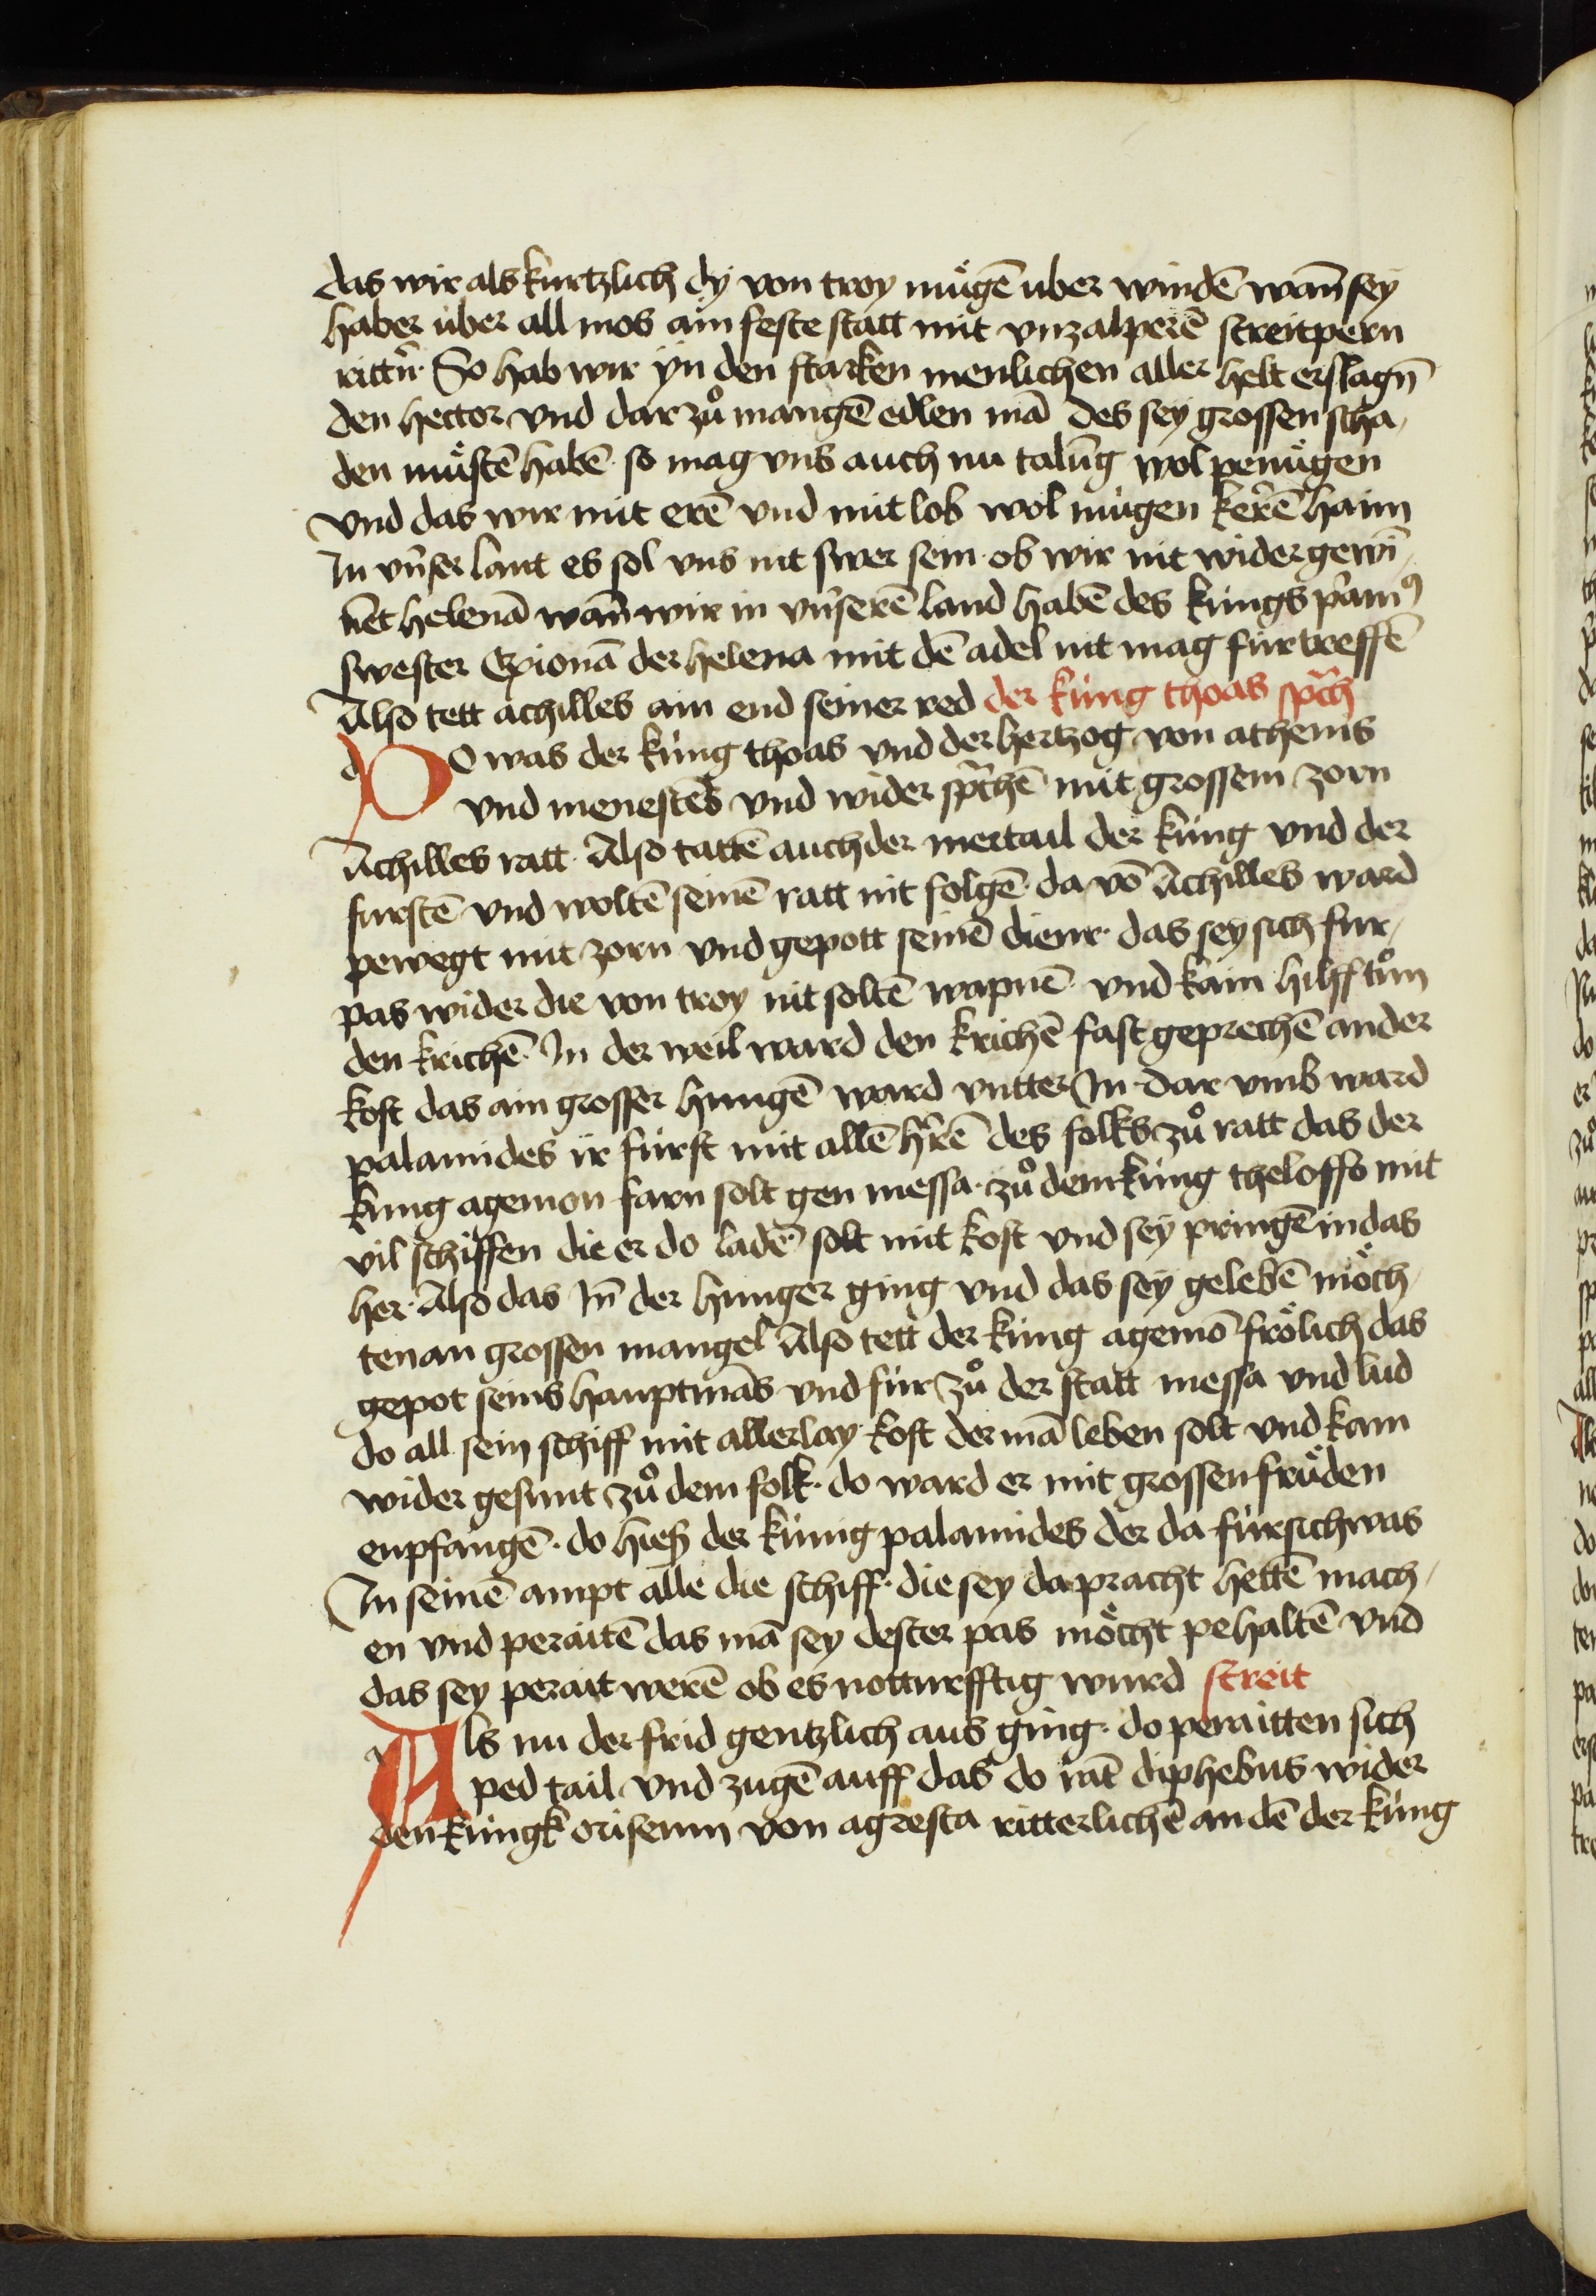 das wir als kurtzlich dy von troy mùgē uber windē wān sey
haben uber all mos ain feste statt mit vnzalperē streitpern
rittr̄n· So hab wir yn den starken menlichen aller helt erslagn̄
den hector vnd dar zů mangē edlen mā des sey grossen scha/
den mùstē habē· so mag vns auch nu talūg wol penùgen
vnd das wir mit erē vnd mit lob wol mùgen kerē haim
In vnser lant es sol vns nit swer sein· ob wir nit wider gewī/
net helenā wān wir in vnserē land habē des kùngs p̄amꝰ
swester Exionā der helena mit dē adel nit mag fùrtreffē
Also tett achilles ain end seiner red der kùng thoas sp̄ch
DO was der kùng thoas vnd der hertzog von athenis
vnd menestēs vnd wider sp̄chē mit grossem zorn
Achilles ratt· Also tattē auch der mertail der kùng vnd der
furstē vnd woltē seinē ratt nit folgē· da vō Achilles ward
pewegt mit zorn vnd gepott seinē dienr̄· das sey sich fur/
pas wider die von troy nit soltē wapnē· vnd kain hilff tůn
den krichē· In der weil ward den krichē fast geprechē an der
kost das ain grosser hungē ward vntter In· dar vmb ward
palamides ir fùrst mit allē hr̄rē des folks zů ratt das der
kung agemon farn solt gen messa· zů dem kùng theloffo mit
vil schiffen die er do ladē solt mit kost vnd sey pringē in das
her· Also das In̄ der hunger ging vnd das sey gelebē mòch/
ten an grossen mangel Also tett der kùng agemō fròlich das
gepot seins hauptmās vnd fùr zů der statt messa vnd lud
do all sein schiff mit allerlay kost der mā leben solt vnd kam
wider gesunt zů dem folk· do ward er mit grossen frùden
enpfangē· do hieß der kùnig palamides der da fùrsich was
In seinē ampt alle die schiff· die sey da pracht hettē mach/
en vnd peraitē das mā sey dester pas mòcht pehaltē vnd
das sey perait werē ob es notturfftig wurd streit
Als nu der frid gentzlich aus ging· do peraitten sich
ped tail vnd zugē auff das do rāt diphebus wider
den kùngk orisenm von agresta ritterlichē an dē der kùng